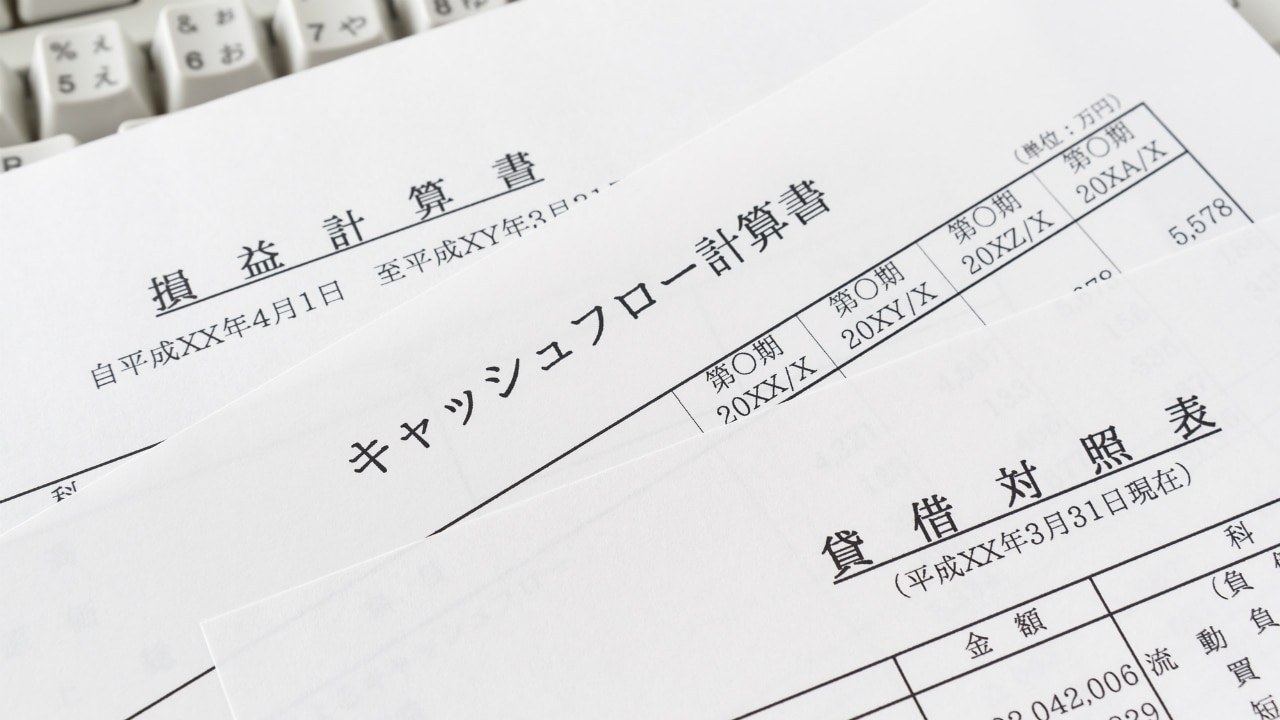 % ぇ
5 え
& ぉ
6 お
7 や
8
R
損益計算書
自平成XX年4月1日 至平成XY年3月31
科
キャッシュフロー計算書
(単位：万円)
第○期 第○期 第○期 第○期
20XX/X 20XY/X 20XZ/X 20XA/X
5,578
貸借対照表
(平成XX年3月31日現在)
金額 科
(負
042,006 流動負
買
短